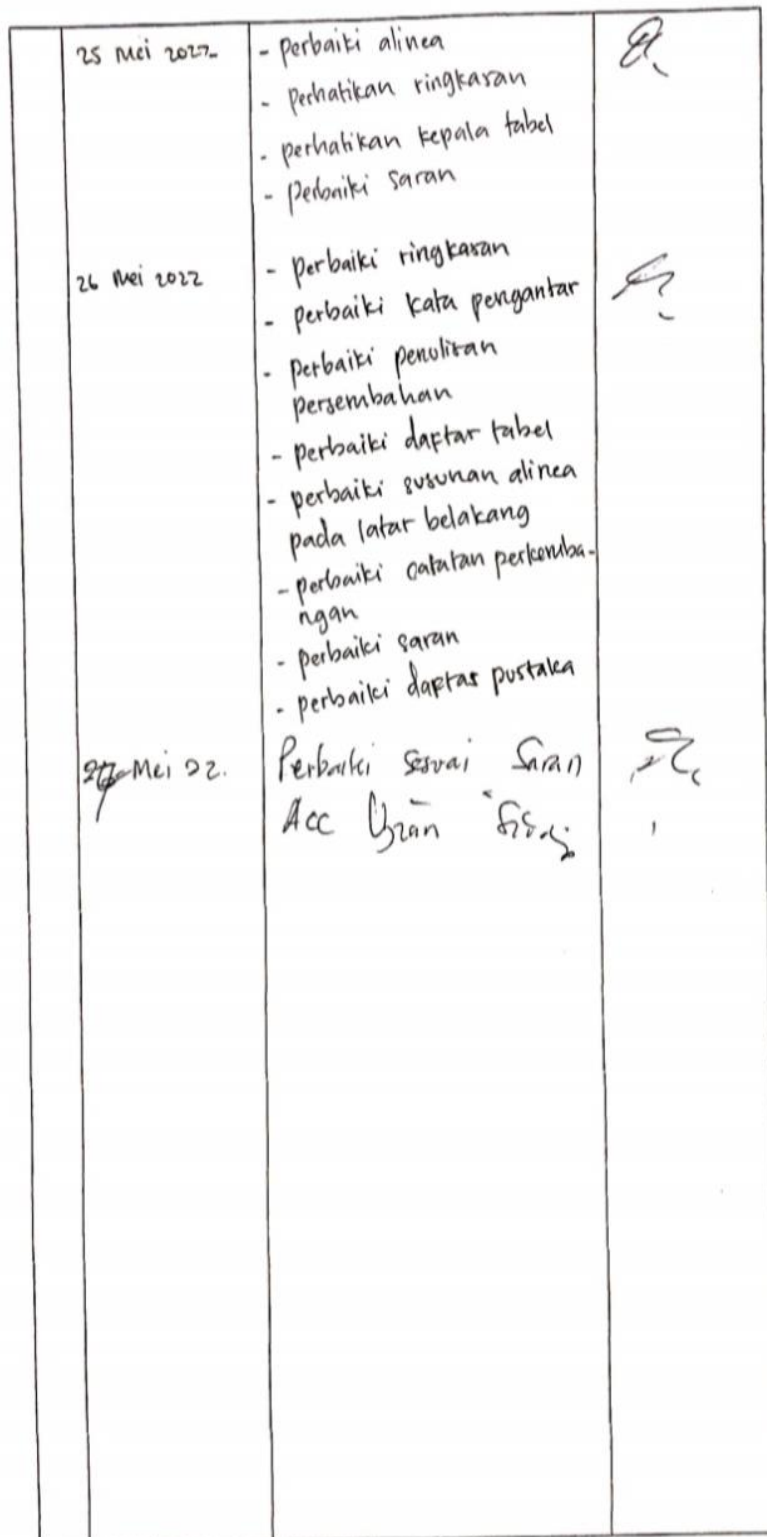 25 Mei 2022
- perbaiki alinea
- perhatikan ringkasan
- perhatikan kepala tabel
- perbaiki saran
26 Mei 2022
- perbaiki ringkasan
- perbaiki kata pengantar
- perbaiki penulisan
persembahan
- perbaiki daftar tabel
- perbaiki susunan alinea
pada latar belakang
- perbaiki catatan perkemba-
ngan
- perbaiki saran
- perbaiki daftar pustaka
Mei 22.
Perbaiki sesuai Saran
Acc